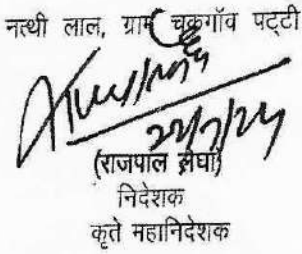 नत्थी लाल, ग्राम चकगॉव पट्टी
(राजपाल लेघा)
निदेशक
कृते महानिदेशक